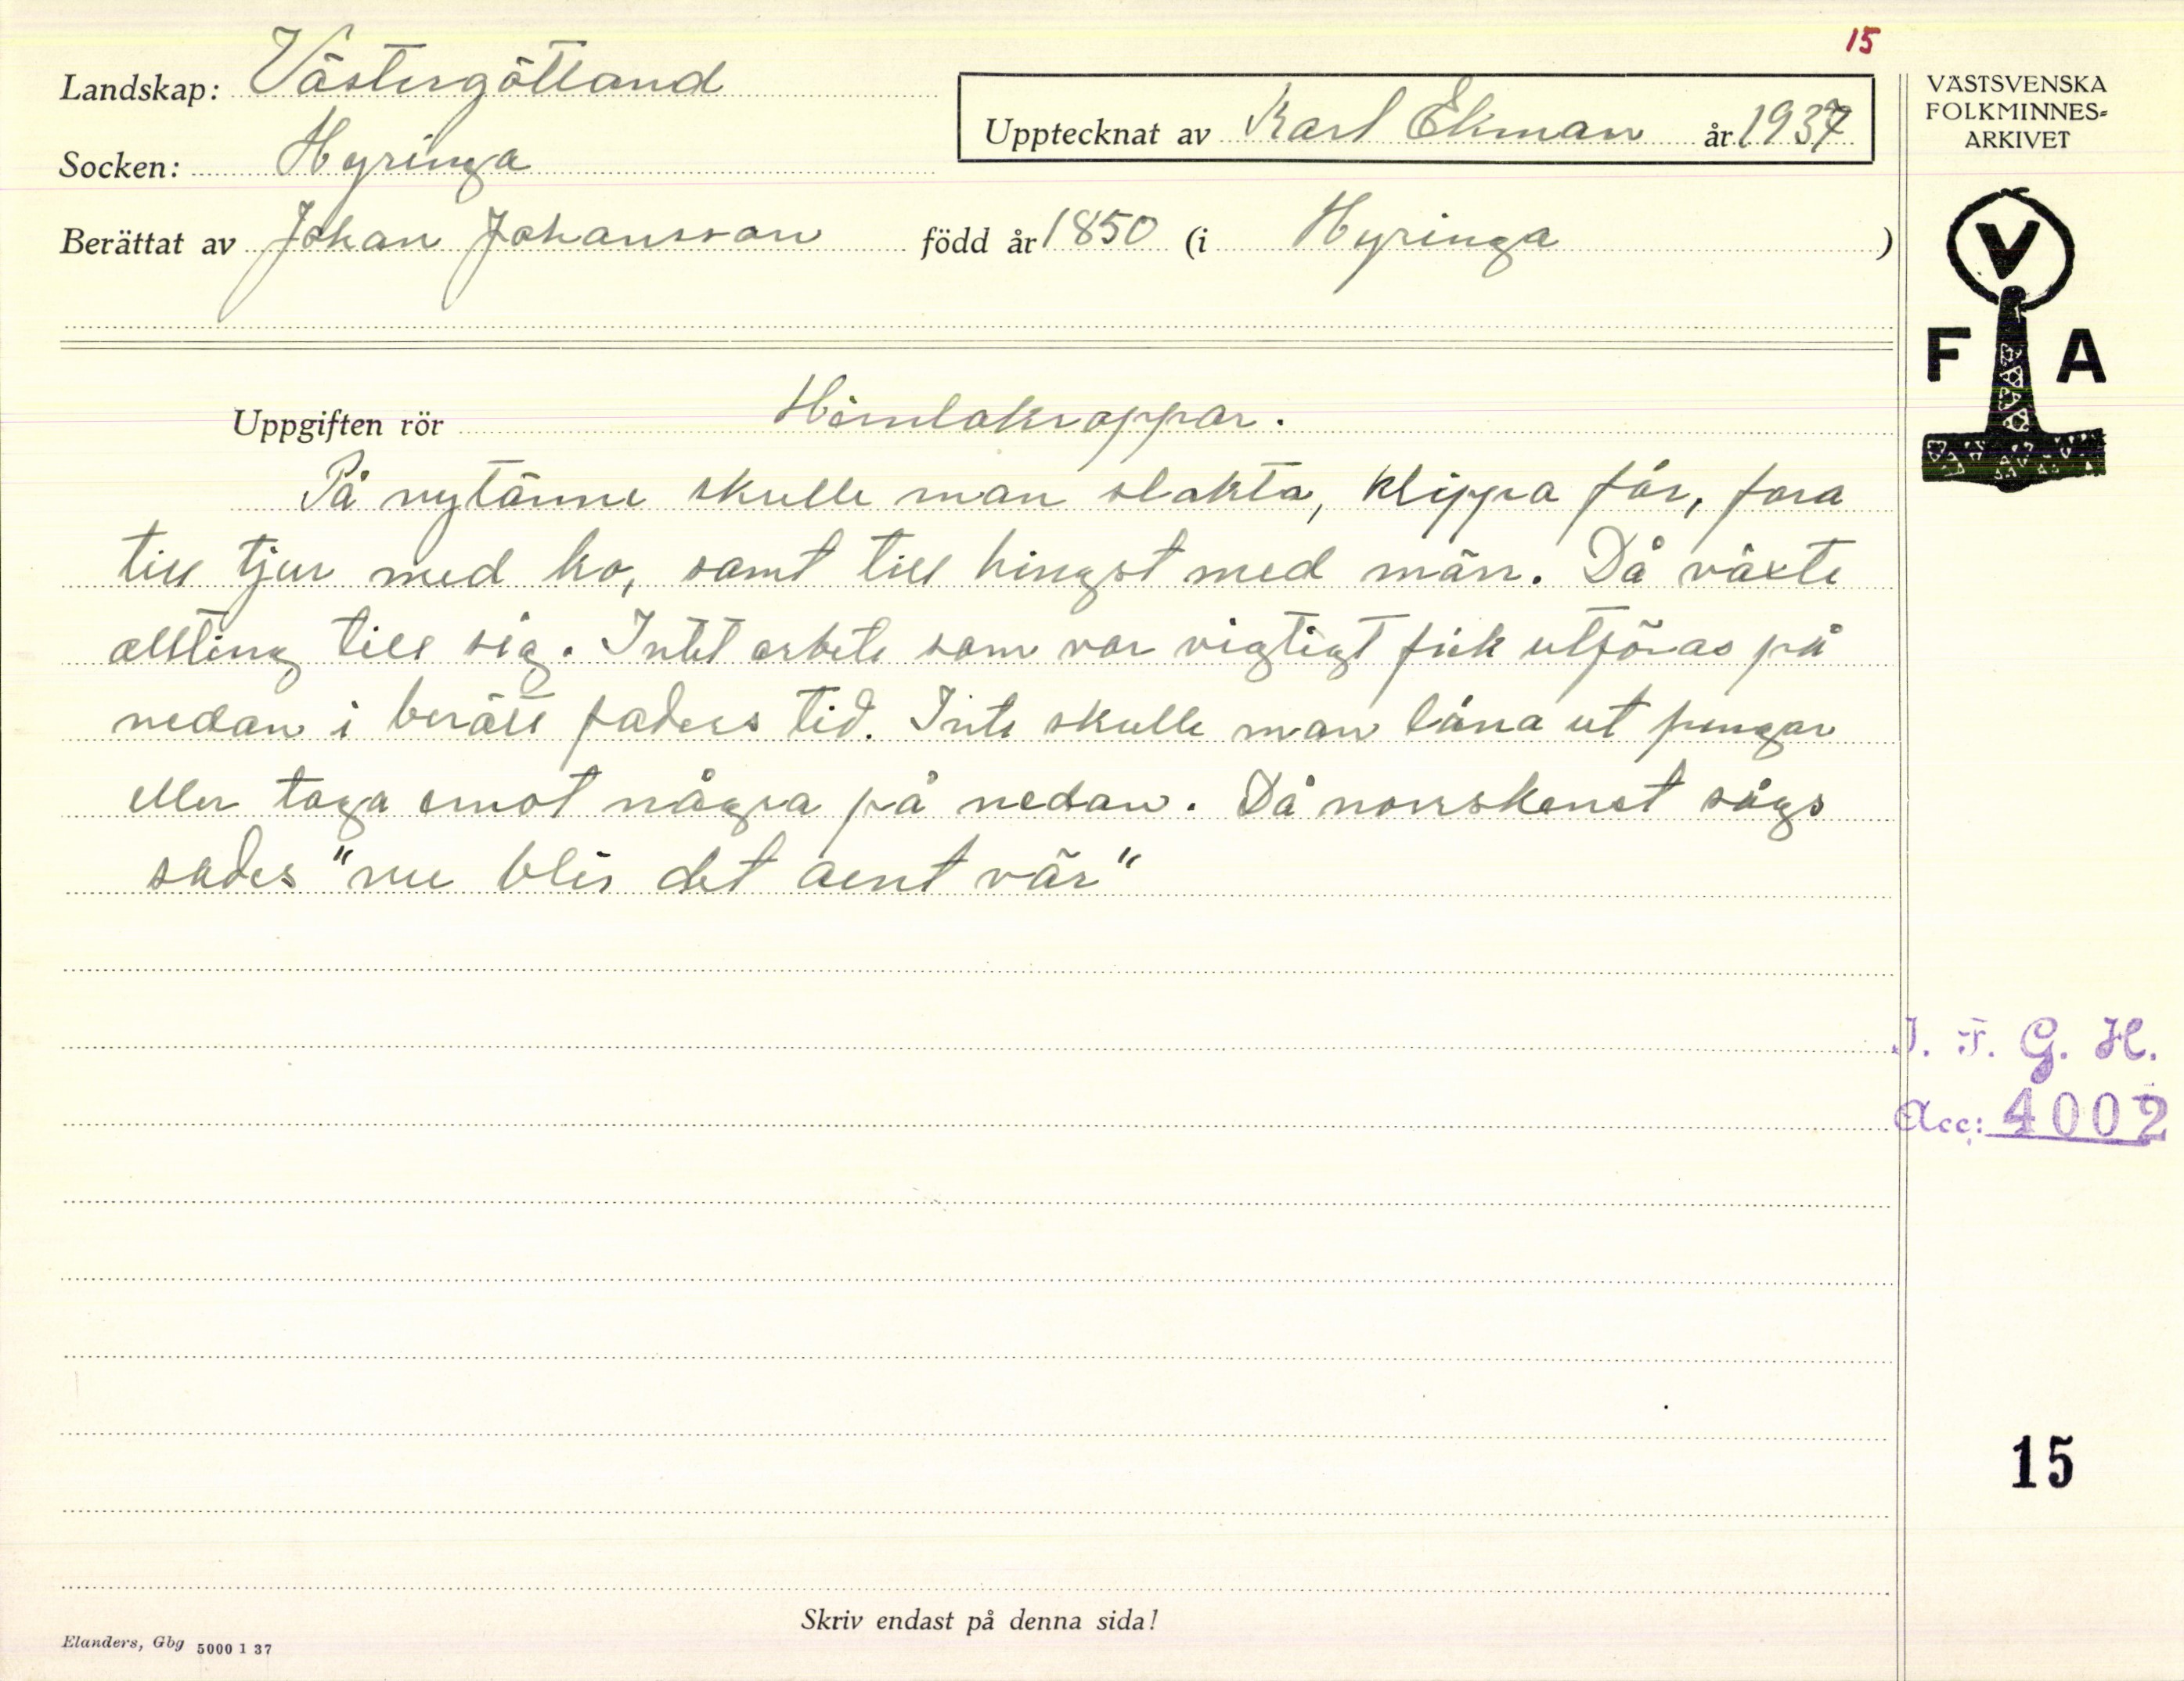 15
Landskap: Västergötland
Upptecknat av Karl Ekman år 1937
VÄSTSVENSKA
FOLKMINNES-
ARKIVET
Socken: Hyringa
Berättat av Johan Johansson född år 1850 (i Hyringa )
V
F A
Uppgiften rör Himlakroppar.
På nytänne skulle man slakta, klippa får, fara
till tjur med ko, samt till hingst med märr. Då växte
allting till sig. Intet arbete som var vigtigt fick utföras på
nedan i berätt faders tid. Inte skulle man låna ut pengar
eller taga emot några på nedan. Då norrskenet sågs
sades "nu blir det aent vär"
I. F. G. H.
Acc: 4002
15
Skriv endast på denna sida!
Elanders, Gbg 5000 1 37